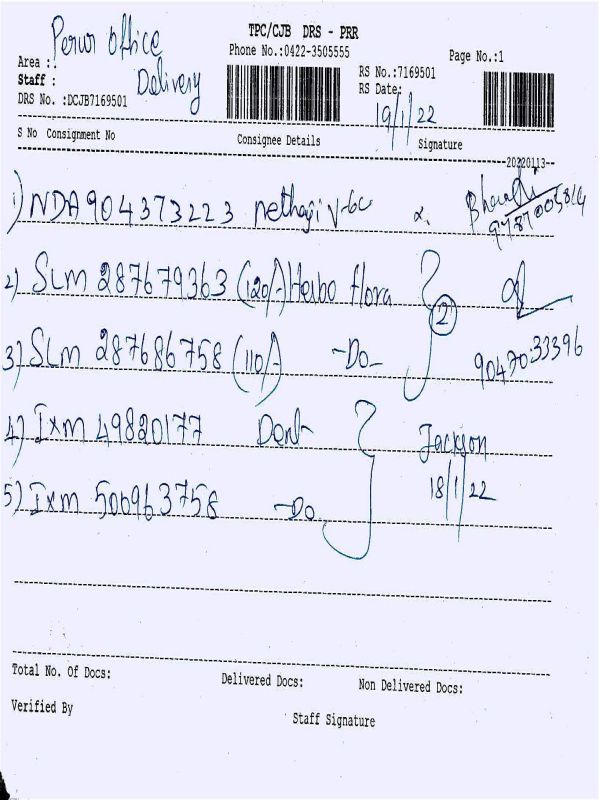 TPC/CJB DRS - PRR
Perur Office
Phone No.:0422-3505555
Page No.:1
Area :
RS No.:7169501
Staff :
Delivery
RS Date:
19/1/22
DRS No. :DCJB7169501
S No Consignment No Consignee Details Signature
20220113
1) NDA904373223 nethaji
2) SLM 287679363 (120/-) Herbo flora
2
3) SLM 287686758 (110/-) -Do-
90470 33396
4) Ixm 49820177 Jackson
5) Ixm 506963758 -Do 18/1/22
Total No. Of Docs: Delivered Docs: Non Delivered Docs:
Verified By
Staff Signature